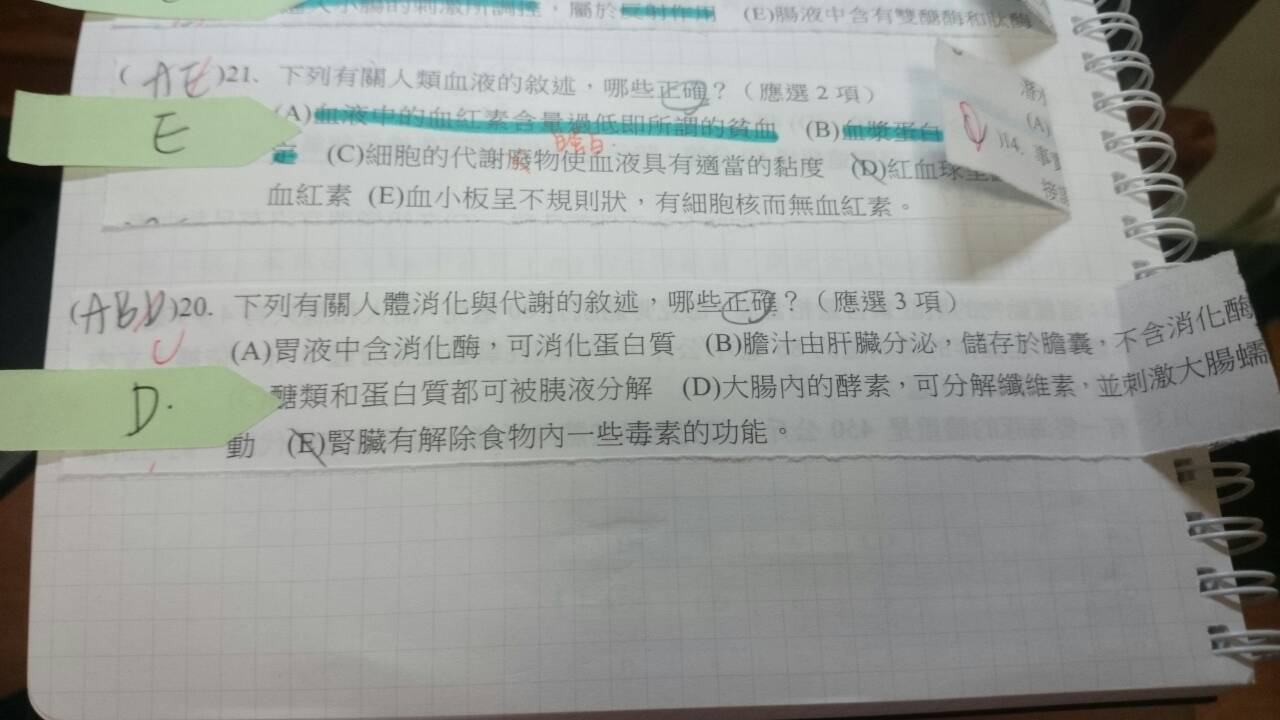 入小腸的刺激所調控，屬於反射作用 (E)腸液中含有雙醣酶和肽酶
(AE)21. 下列有關人類血液的敘述，哪些正確？（應選2項）
E
(A)血液中的血紅素含量過低即所謂的貧血 (B)血漿蛋白
定 (C)細胞的代謝廢物使血液具有適當的黏度 (D)紅血球呈
蛋白
血紅素 (E)血小板呈不規則狀，有細胞核而無血紅素。
(A)
114. 事
(ABD)20. 下列有關人體消化與代謝的敘述，哪些正確？（應選3項）
(A)胃液中含消化酶，可消化蛋白質 (B)膽汁由肝臟分泌，儲存於膽囊，不含消化酶
D.
醣類和蛋白質都可被胰液分解 (D)大腸內的酵素，可分解纖維素，並刺激大腸蠕
動 (E)腎臟有解除食物內一些毒素的功能。